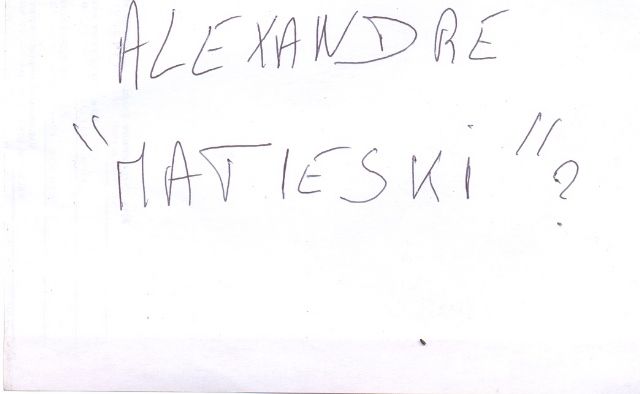 ALEXANDRE
"MATIESKi"?